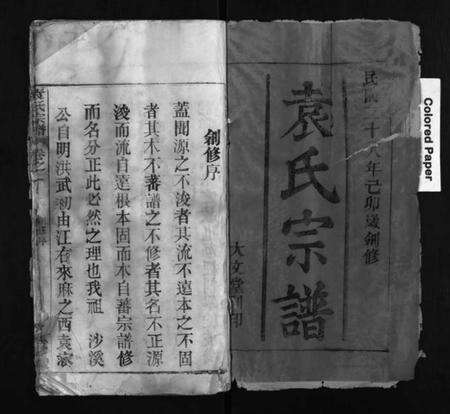 民國二十八年己卯歲創修
袁氏宗譜
大文堂刊印
Colored Paper
創修序
蓋聞源之不浚者其流不遠本之不固
者其木不蕃譜之不修者其名不正源
浚而流自遠根本固而木自蕃宗譜修
而名分正此必然之理也我祖 沙溪
公自明洪武初由江右來麻之西袁家
袁氏宗譜